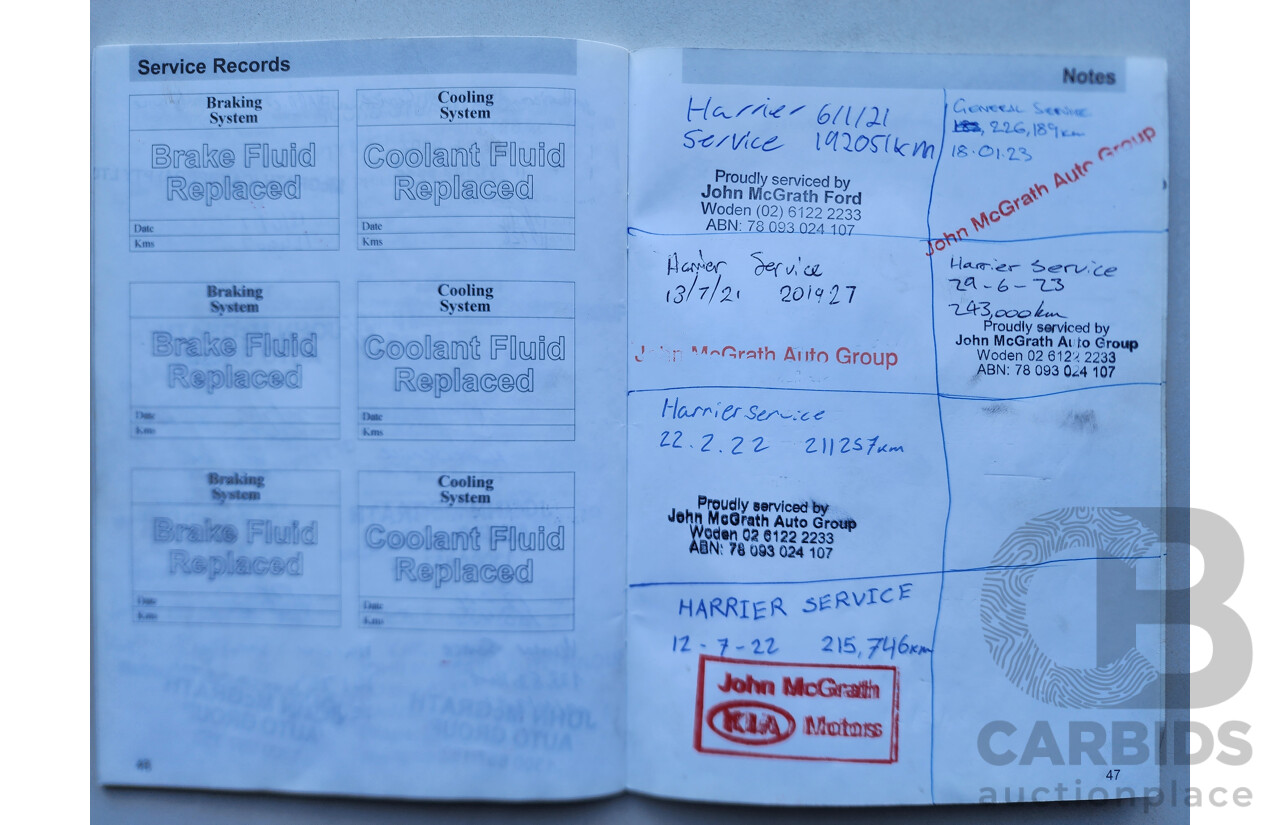 Service Records
Braking
System
Brake Fluid
Replaced
Date
Kms
Cooling
System
Coolant Fluid
Replaced
Date
Kms
Braking
System
Brake Fluid
Replaced
Date
Kms
Cooling
System
Coolant Fluid
Replaced
Date
Kms
Braking
System
Brake Fluid
Replaced
Date
Kms
Cooling
System
Coolant Fluid
Replaced
Date
Kms
46
Notes
Harrier 6/1/21
Service 192051km
Proudly serviced by
John McGrath Ford
Woden (02) 6122 2233
ABN: 78 093 024 107
Harrier Service
13/7/21 201927
John McGrath Auto Group
Harrier service
22.2.22 211257km
Proudly serviced by
John McGrath Auto Group
Woden 02 6122 2233
ABN: 78 093 024 107
HARRIER SERVICE
12-7-22 215,746km
John McGrath
KIA Motors
GENERAL SERVICE
226,189km
18.01.23
John McGrath Auto Group
Harrier Service
29-6-23
243,000km
Proudly serviced by
John McGrath Auto Group
Woden 02 6122 2233
ABN: 78 093 024 107
47
CB
CARBIDS
auctionplace